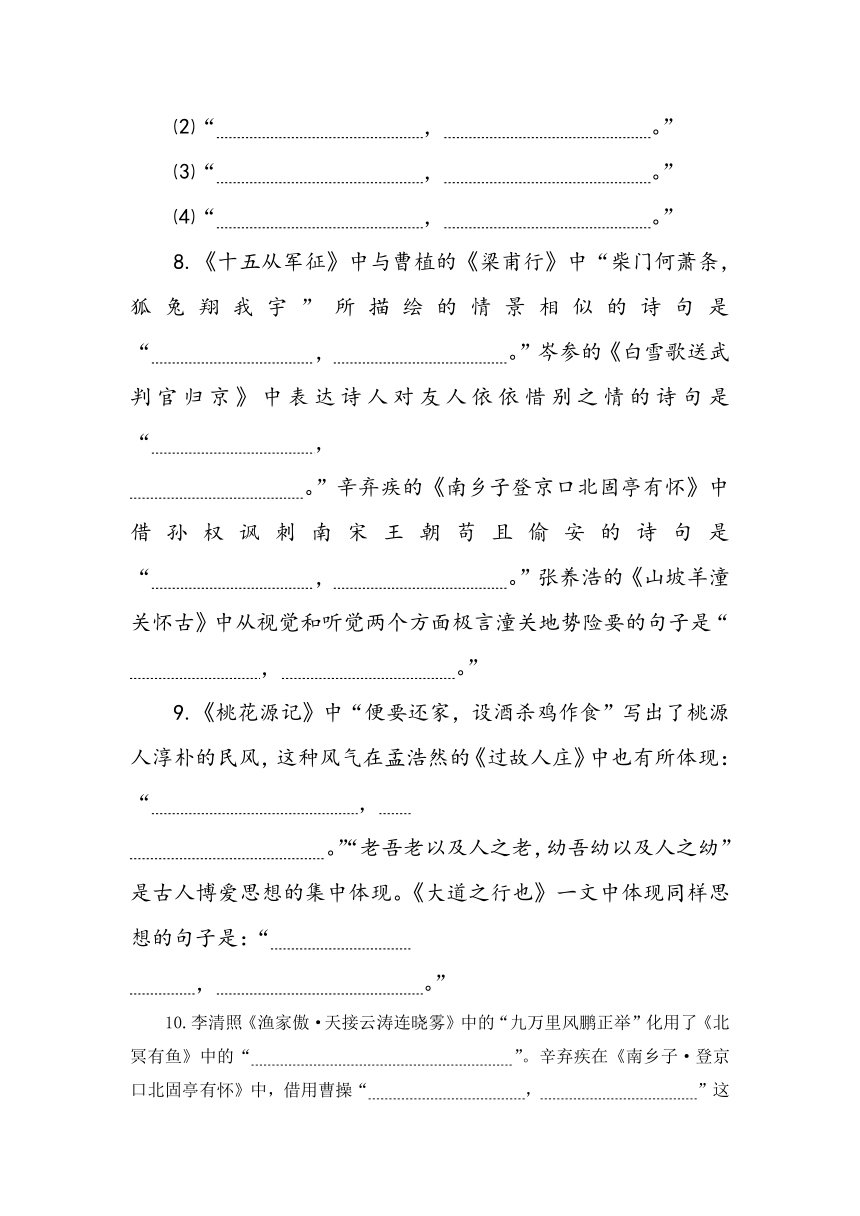 (2)“，。”
(3)“，。”
(4)“，。”
8.《十五从军征》中与曹植的《梁甫行》中“柴门何萧条，
狐兔翔我宇”所描绘的情景相似的诗句是
“，。”岑参的《白雪歌送武
判官归京》中表达诗人对友人依依惜别之情的诗句是
“，
。”辛弃疾的《南乡子登京口北固亭有怀》中
借孙权讽刺南宋王朝苟且偷安的诗句是
“，。”张养浩的《山坡羊潼
关怀古》中从视觉和听觉两个方面极言潼关地势险要的句子是“
，。”
9.《桃花源记》中“便要还家，设酒杀鸡作食”写出了桃源
人淳朴的民风，这种风气在孟浩然的《过故人庄》中也有所体现：
“，
。”“老吾老以及人之老，幼吾幼以及人之幼”
是古人博爱思想的集中体现。《大道之行也》一文中体现同样思
想的句子是：“
，。”
10.李清照《渔家傲·天接云涛连晓雾》中的“九万里风鹏正举”化用了《北
冥有鱼》中的“”。辛弃疾在《南乡子·登京
口北固亭有怀》中，借用曹操“，”这